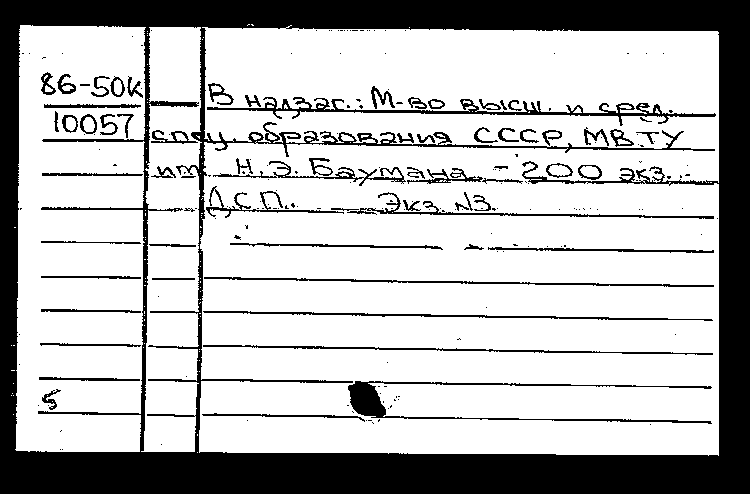 86-50к
10057
В надзаг.: М-во высш. и сред.
спец. образования СССР, МВТУ
им. Н.Э. Баумана. - 200 экз. -
ДСП. — Экз. №3.
5